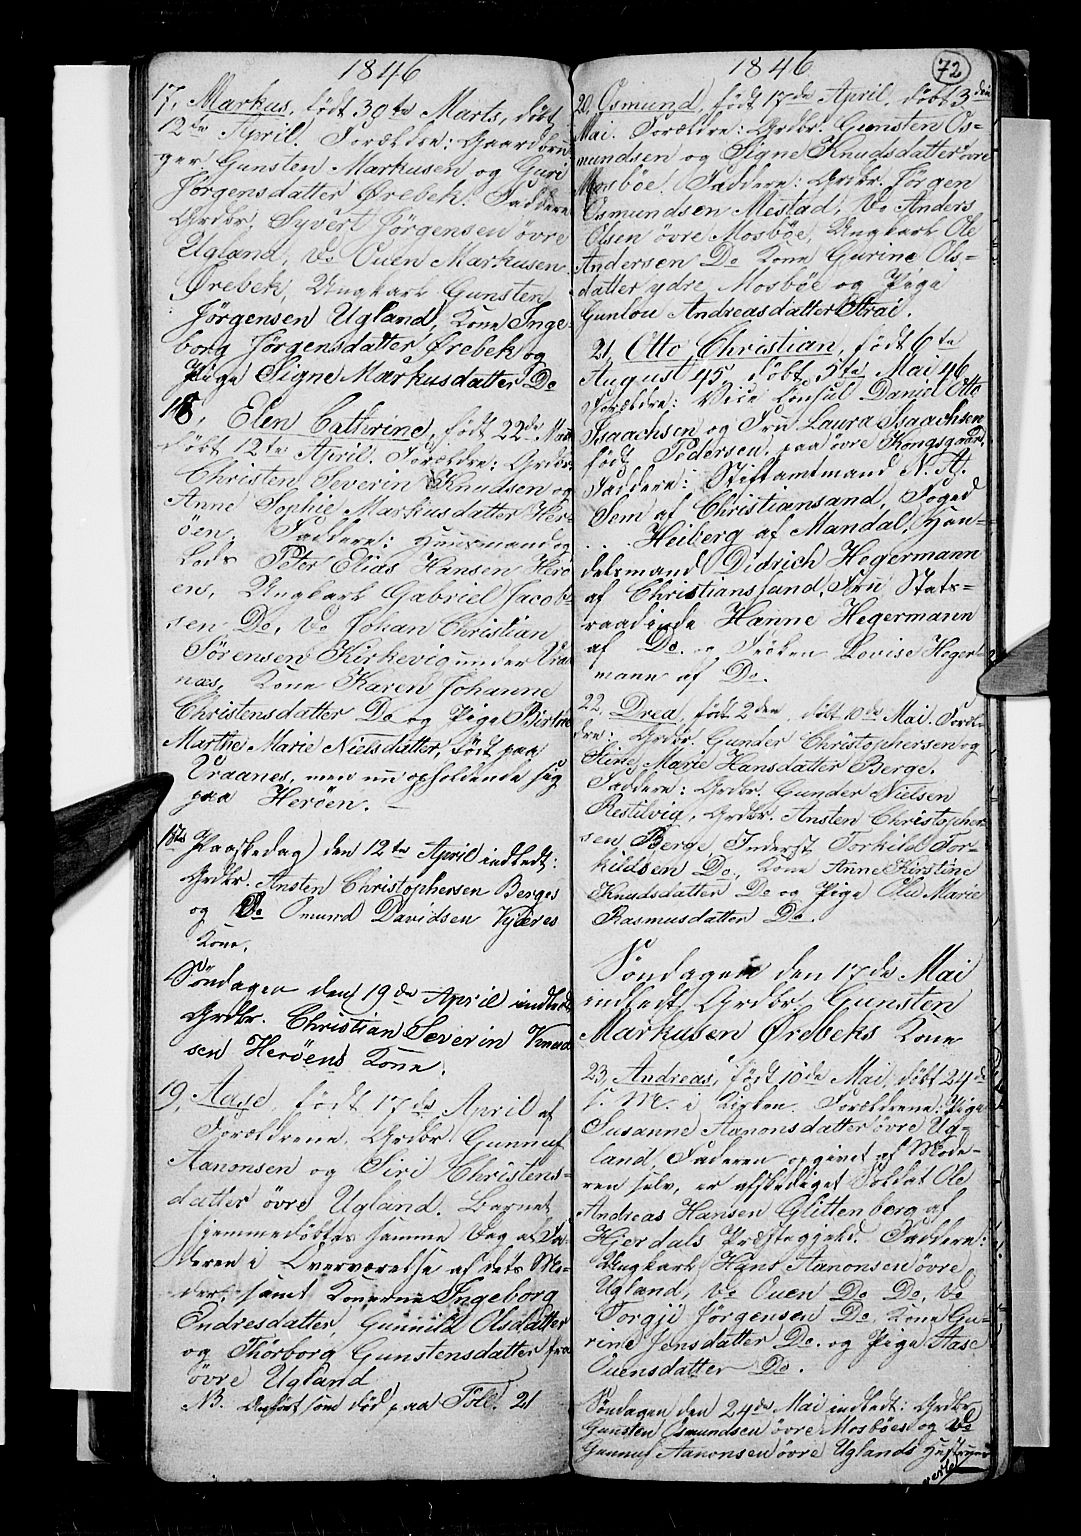 1846
17, Markus, født 30te Marts, døbt
12te April. Forældre: Gaardbru-
ger Gunsten Markusen og Guri
Jørgensdatter Ørebek. Faddere
Grdbr. Syvert Jørgensen øvre
Ugland, Do Ouen Markusen
Ørebek, Ungkarl Gunsten
Jørgensen Ugland, Kone Inge-
borg Jørgensdatter Ørebek og
Pige Signe Markusdatter Do
18, Elen Cathrine, født 22de Marts
døbt 12te April. Forældre: Grdbr.
Christen Severin Knudsen og
Anne Sophie Markusdatter Her-
øen, Faddere: Huusmand og
Lods Peter Elias Hansen Herø-
en, Ungkarl Gabriel Jacob-
sen Do, Do Johan Christian
Sørensen Kirkevig under Vraa-
næs, Kone Karen Johanne
Christensdatter Do og Pige
Marthe Marie Nielsdatter, født paa
Vraanes, men nu opholdende sig
paa Herøen. –
(Paaskedag) den 12te April indledt:
Grdbr. Ansten Christophersen Berges
og Do Omund Davidsen Kjæres
Kone.
Søndagen den 19de April indledt
Grdbr. Christian Severin Knud-
sen Herøens Kone.
19, Aase, født 17de April af
Forældrene, Grdbr. Gunnuf
Aanonsen og Siri Christens-
datter øvre Ugland. Barnet
hjemmedøbtes samme Dag af Fa-
deren i Overværelse af dets Mo-
der, samt Konerne Ingeborg
Endresdatter, Gunnild Olsdatter
og Thorborg Gunstensdatter fra
øvre Ugland
NB. Anført som død paa Fol. 21
1846
72
20. Osmund, født 17de April, døbt 3die
Mai. Forældre: Grdbr. Gunsten Os-
mundsen og Signe Knudsdatter øvre
Mosbøe. Faddere: Grdbr. Jørgen
Osmundsen Mestad, Do Anders
Olsen øvre Mosbøe, Ungkarl Ole
Andersen Do Kone Gurine Ols-
datter ydre Mosbøe og Pige
Gunlou Andreasdatter Strai.
21, Otto Christian, født 6te
August 45, døbt 5te Mai 46
Forældre: Vice Consul Daniel Otto
Isaachsen og Fru Laura Isaachsen
født Pedersen, paa øvre Kongsgaard.
Faddere: Stiftamtmand N. A.
Sem af Christiansand, Foged
. . . Heiberg af Mandal, Han-
delsmand Didrich Hegermann
af Christianssand, Fru Stats-
raadinde Hanne Hegermann
af Do. og Frøken Lovise Heger-
mann af Do.
22, Drea, født 2den, døbt 10de Mai. Foræl-
dre: Grdbr. Gunder Christophersen og
Stine Marie Hansdatter Berge.
Faddere: Grdbr. Gunder Nielsen
Røstilvig, Grdbr. Ansten Christopher-
sen Berge, Inderst Torkild Tor-
kildsen Do, Kone Anne Kirstine
Knudsdatter Do og Pige Olu Marie
Rasmusdatter Do.
Søndagen den 17de Mai
indledt Grdbr. Gunsten
Markusen Ørebeks Kone
23, Andreas, født 10de Mai, døbt 24de
s. M. i Kirken. Forældrene: Pige
Susanne Aanonsdatter øvre Ug-
land, Faderen opgivet af Mode-
ren selv, er afskediget Soldat Ole
Andreas Hansen Glittenberg af
Hjerdals Præstegjeld. Faddere:
Ungkarl Hans Aanonsen øvre
Ugland, Do Ouen Do Do, Do
Torgji Jørgensen Do, Kone Gu-
rine Jensdatter Do. og Pige Aase
Ouensdatter Do.
Søndagen den 24de Mai indledt: Grdbr.
Gunsten Osmundsen øvre Mosbøes og Do
Gunnuf Aanonsen øvre Uglands Hustruer